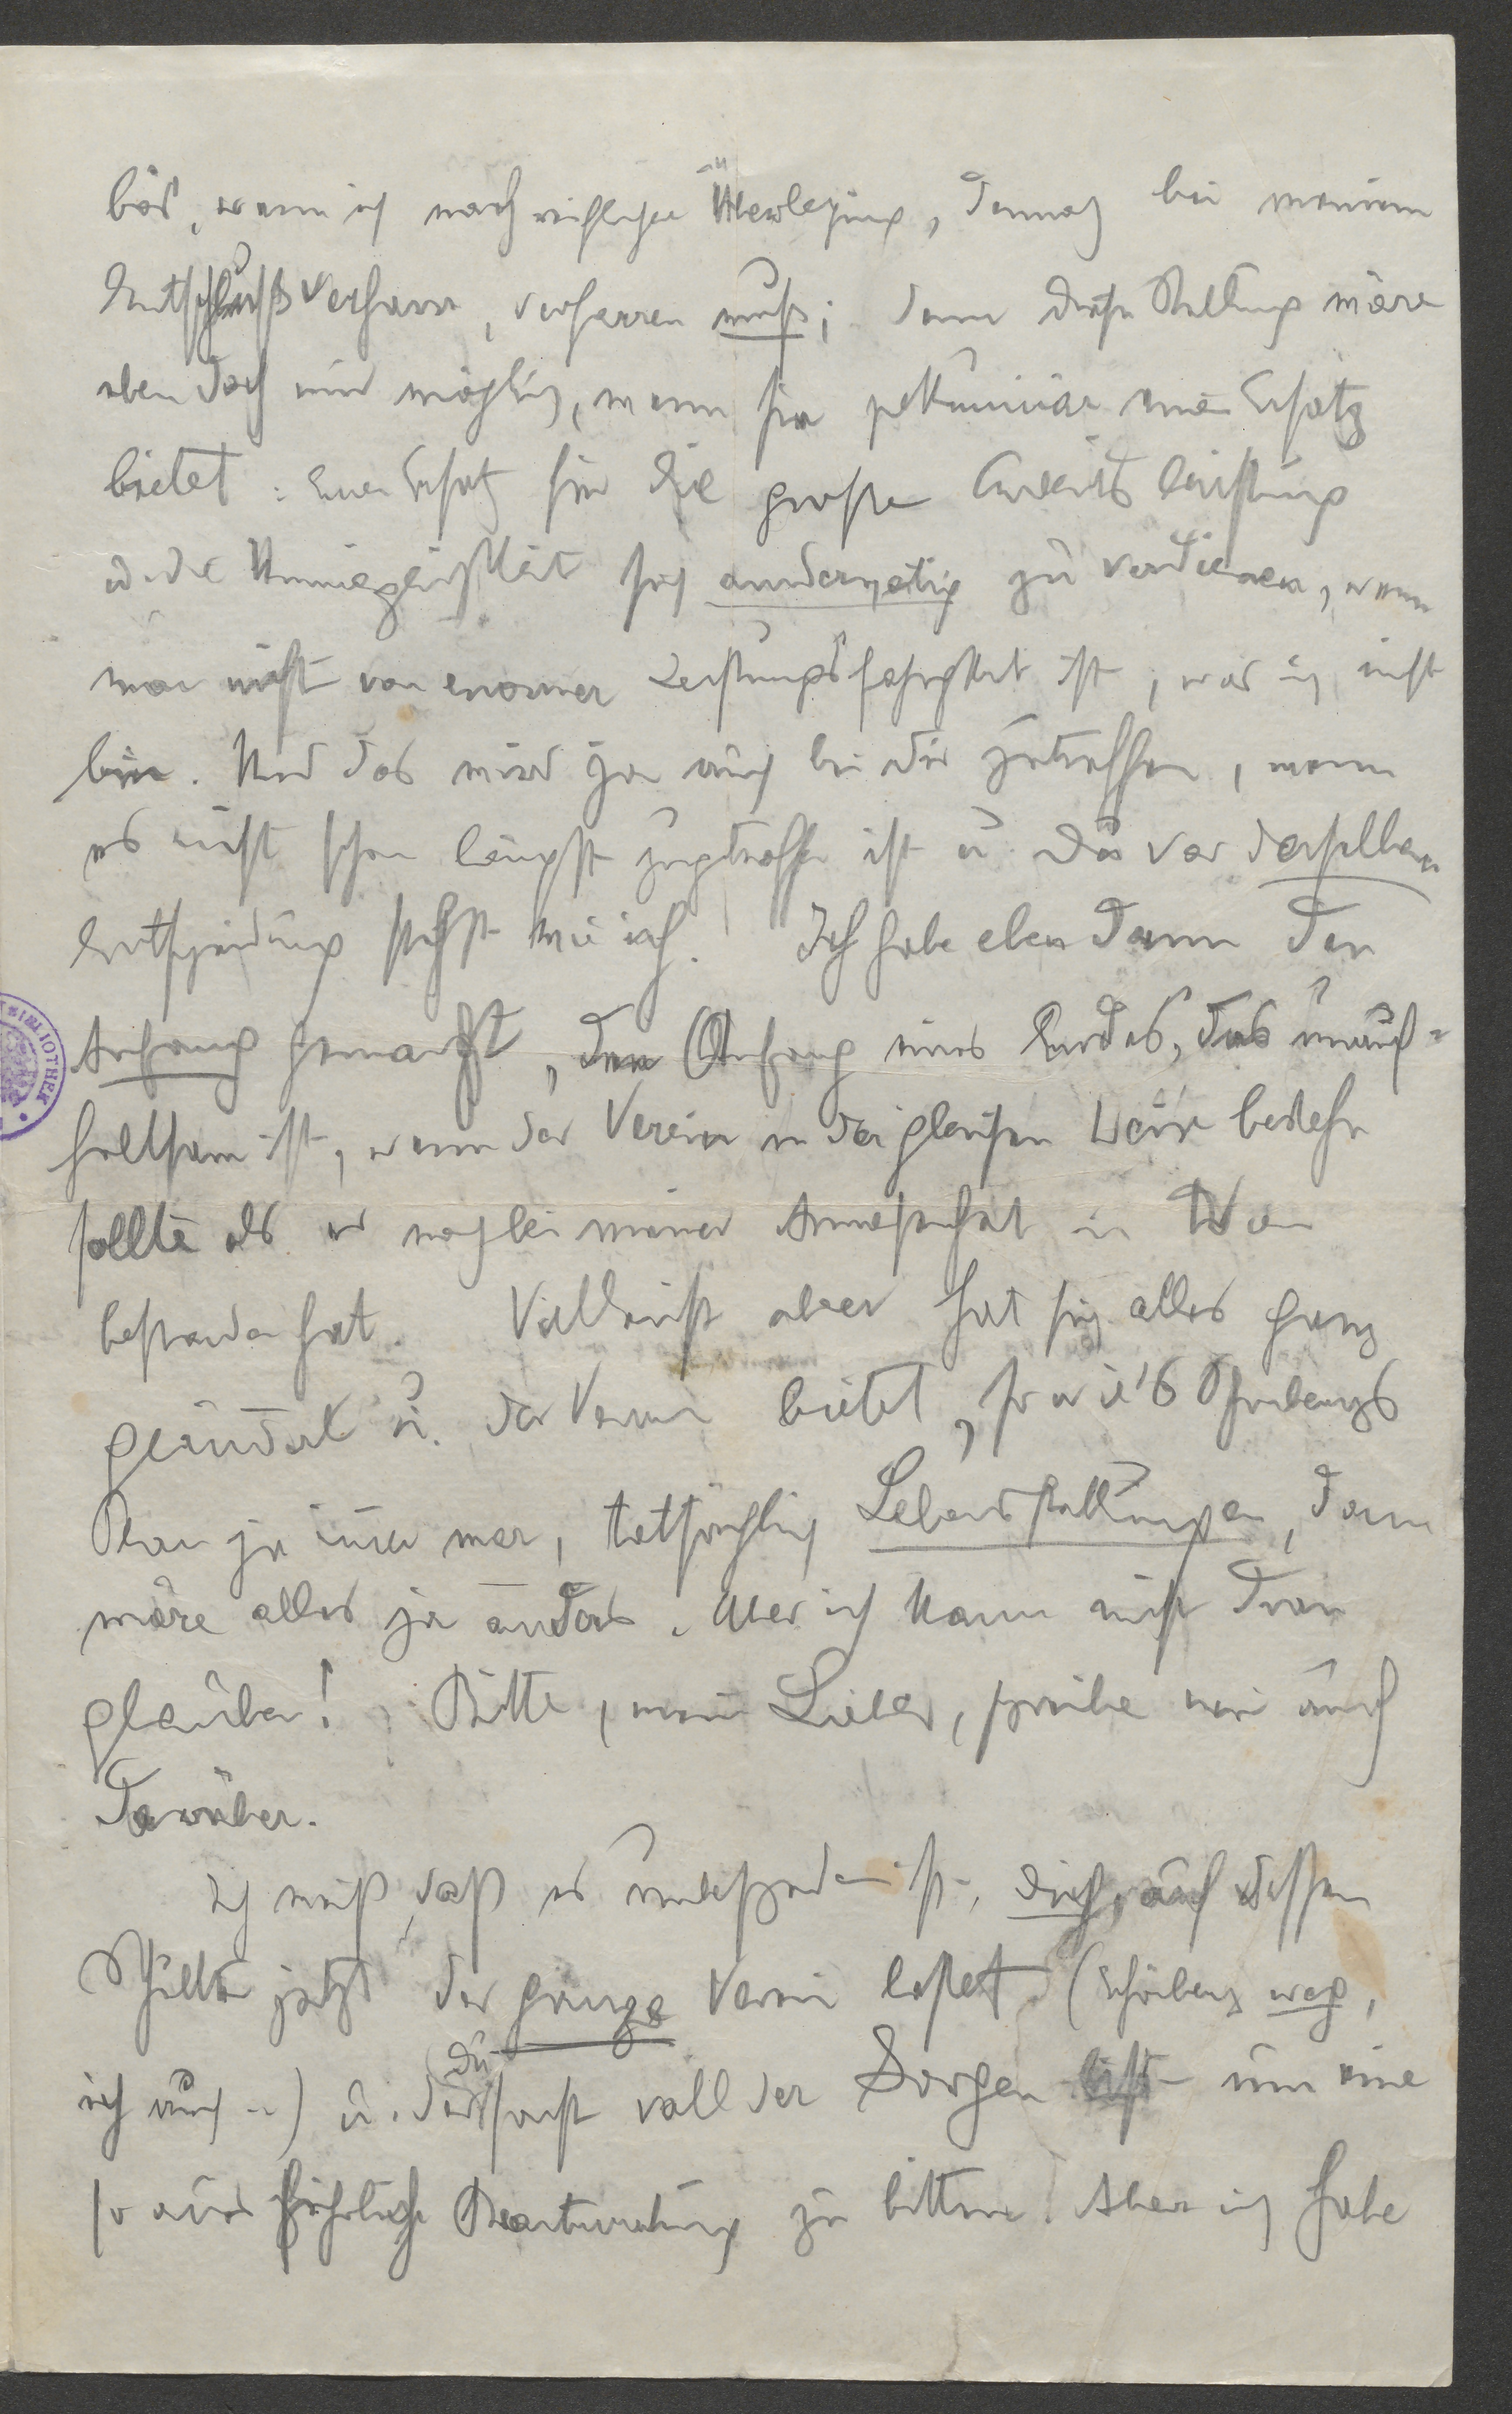 bös, wenn ich nach reiflicher Überlegung, dennoch bei meinem
Entschluß verharre, verharren muß; denn diese Stellung wäre
eben doch nur möglich, wenn sie pekuniär einen Ersatz
bietet: einen Ersatz für die große Arbeitsleistung
u. die Unmöglichkeit sich anderweitig zu verdienen, wenn
man nicht von enormer Leistungsfähigkeit ist, was ich nicht
bin. Und das wird ja auch bei dir zutreffen, wenn
es nicht schon längst zugetroffen ist u. Du vor derselben
Entscheidung stehst wie ich. Ich habe eben dann den
Anfang gemacht, den Anfang eines Endes, das unauf-
haltsam ist, wenn der Verein in der gleichen Weise bestehn
sollte als er noch bei meiner Anwesenheit in Wien
bestanden hat. Vielleicht aber hat sich alles ganz
geändert u. der Verein bietet, so wie's Schönbergs
Plan ja immer war, tatsächlich Lebensstellungen, dann
wäre alles ja anders. Aber ich kann nicht dran
glauben! Bitte, mein Lieber, schreibe mir auch
darüber.
Ich weiß, daß es unbescheiden ist, dich, auf dessen
Schultern jetzt der ganze Verein lastet (Schönberg weg,
ich auch –) u. der Du sonst voll der Sorgen bist um eine
so ausführliche Beantwortung zu bitten. Aber ich habe
BIBLIOTHEK